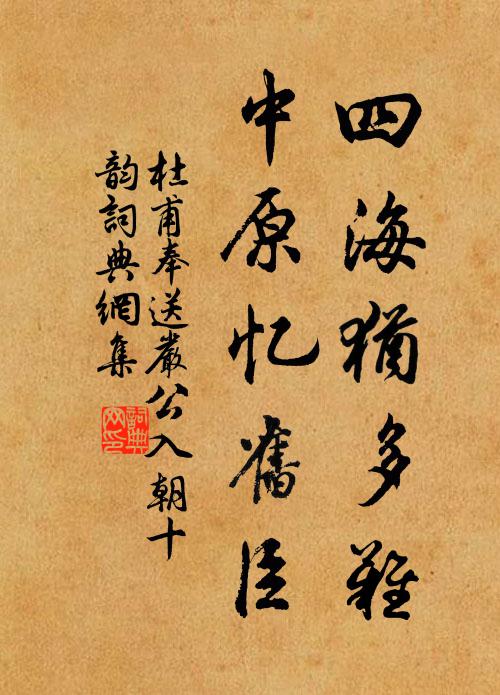 四海猶多難
中原忆舊臣
杜甫奉送嚴公入朝十
韵詞典網集